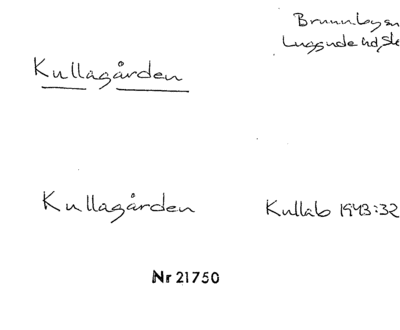 Brunnby sn
Luggude hd, Sk
Kullagården
Kullagården Kullab 1943:32
Nr 21750